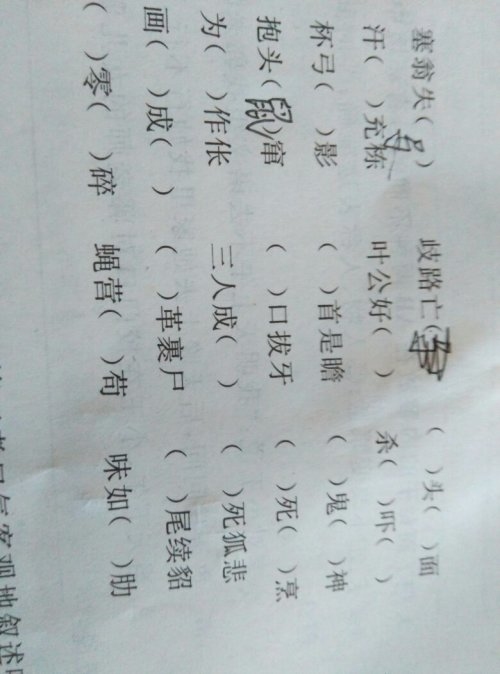 塞翁失( ) 歧路亡( ( )头( )面
汗( )充栋 叶公好( ) 杀( )吓( )
杯弓( )影 ( )首是瞻 ( )鬼( )神
抱头(鼠)窜 ( )口拔牙 ( )死( )烹
为( )作伥 三人成( ) ( )死狐悲
画( )成( ) ( )革裹尸 ( )尾续貂
( )零( )碎 蝇营( )苟 味如( )肋
客观地叙述